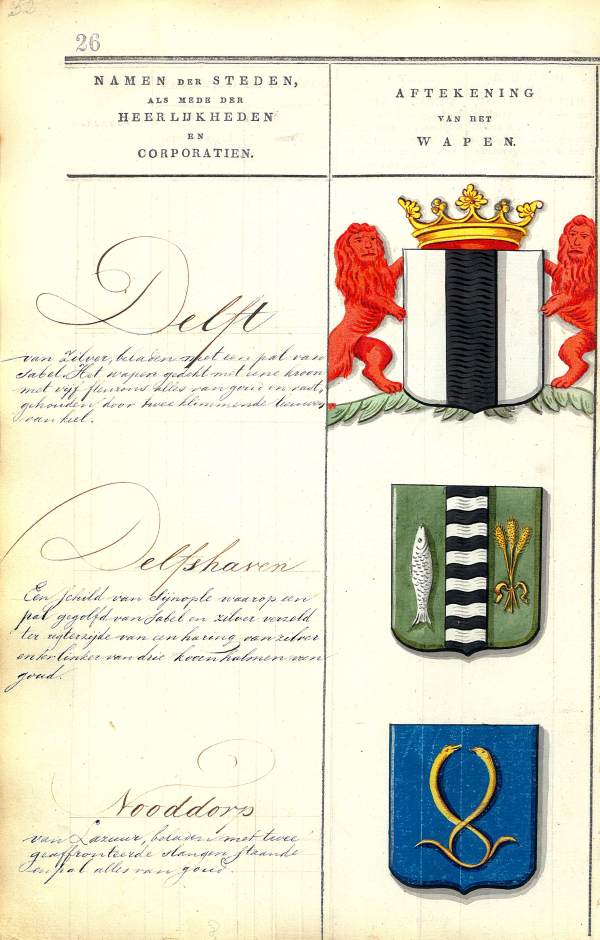 52
26
NAMEN DER STEDEN,
ALS MEDE DER
HEERLIJKHEDEN
EN
CORPORATIEN.
AFTEKENING
VAN HET
WAPEN.
Delft
van Zilver, beladen met een pal van
Sabel. Het wapen gedekt met eene kroon
met vijf fleurons alles van goud en vast,
gehouden door twee klimmende leeuwen
van kiel.
Delfshaven
Een schild van Sijnople waarop een
pal gegolfd van Sabel en zilver verzeld
ter regterzijde van een haring van zilver
en ter linker van drie koornhalmen van
goud.
Nooddorp
van Lazuur, beladen met twee
geaffronteerde Slangen staande
en pal alles van goud.